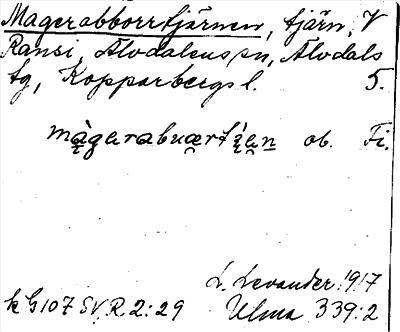 Magerabborrtjärnen, tjärn, V
Ransi, Älvdalens sn, Älvdals
tg, Kopparbergs l. 5.
ob. Fi.
L. Levander 1917
k G 107 SV, R. 2:29 Ulma 339:2